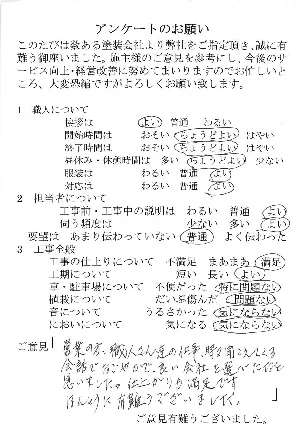 アンケートのお願い
このたびは数ある塗装会社より弊社をご指定頂き、誠に有
難う御座いました。施主様のご意見を参考にし、今後のサ
ービス向上・経営改善に努めてまいりますのでお忙しいと
ころ、大変恐縮ですがよろしくお願い致します。
1 職人について
挨拶は よい 普通 わるい
開始時間は おそい ちょうどよい はやい
終了時間は おそい ちょうどよい はやい
昼休み・休憩時間は 多い ちょうどよい 少ない
服装は わるい 普通 よい
対応は わるい 普通 よい
2 担当者について
工事前・工事中の説明は わるい 普通 よい
伺う頻度は 少ない 多い よい
要望は あまり伝わっていない 普通 よく伝わった
3 工事全般
工事の仕上りについて 不満足 まあまあ 満足
工期について 短い 長い よい
車・駐車場について 不便だった 特に問題ない
植栽について だいぶ傷んだ 問題ない
音について うるさかった 気にならない
においについて 気になる 気にならない
ご意見
営業の方、職人さん達の仕事、時々
会話で 良い会社を選べたなと
思いました。仕上がりも満足です
ほんとうに有難うございました。
ご意見有難うございました。